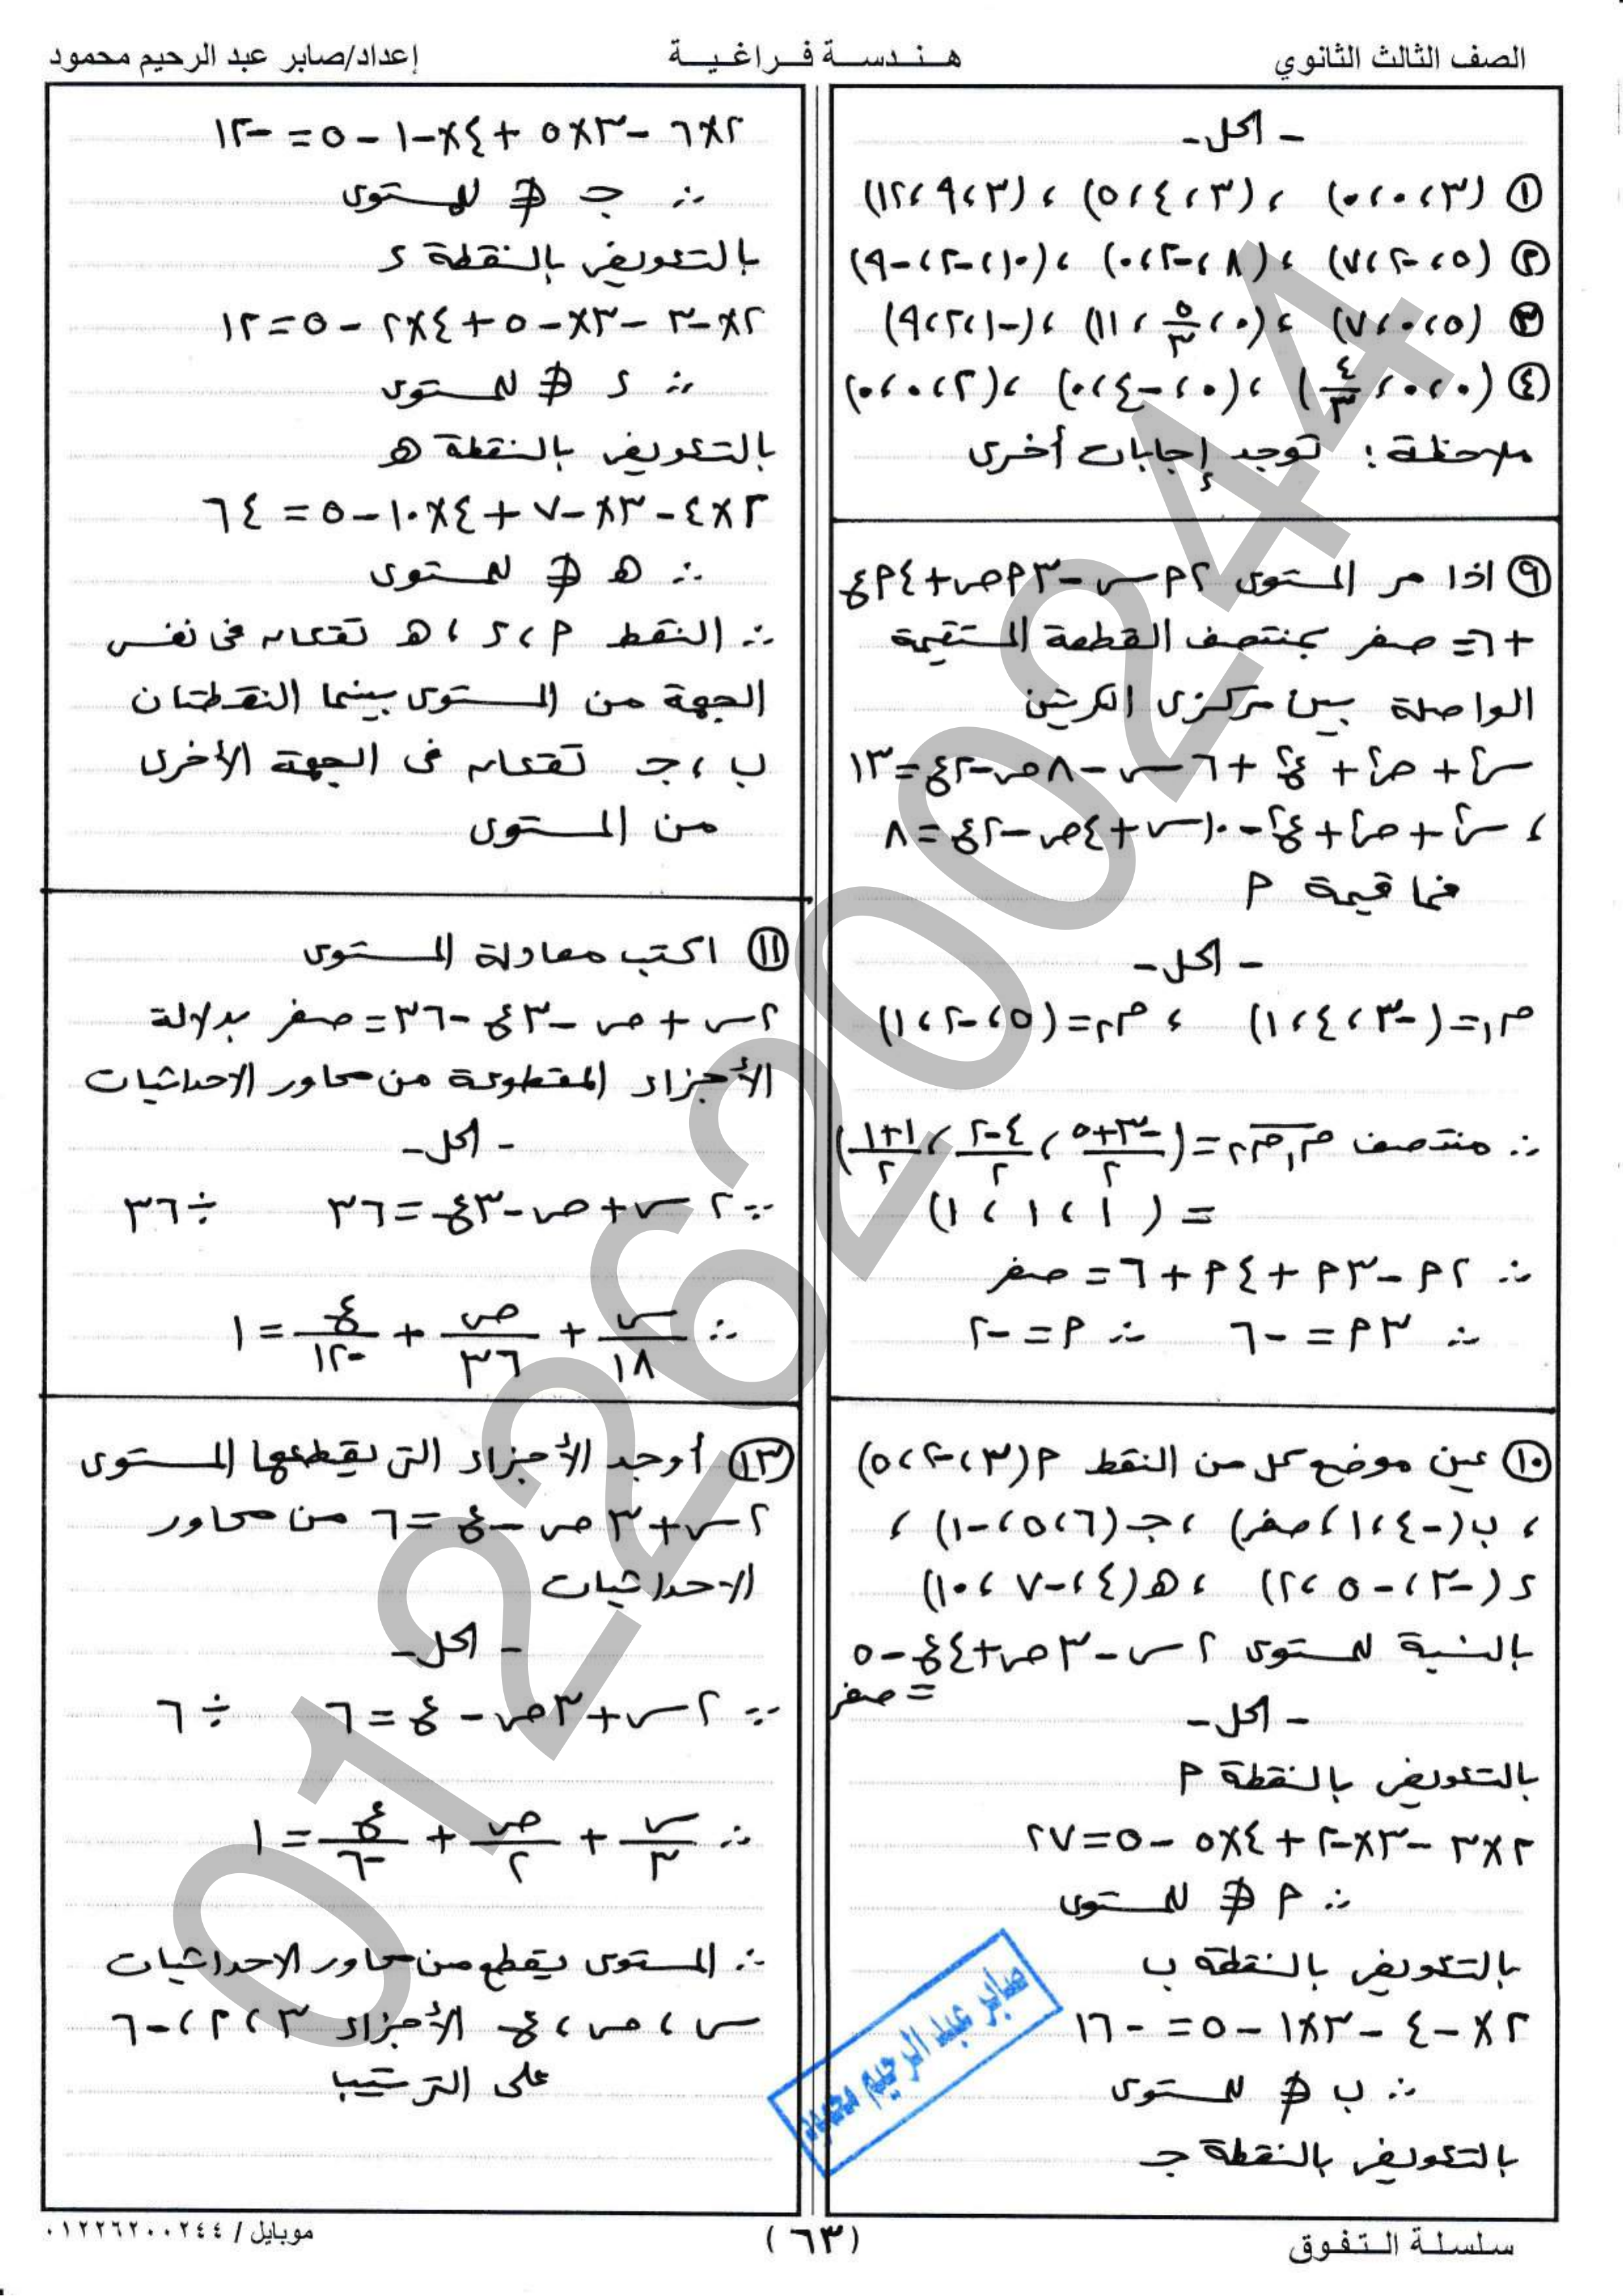 الصف الثالث الثانوي
هـنـدسـة فـراغـيـة
إعداد/صابر عبد الرحيم محمود
- الحل -
① (٣، ٠، ٠) ، (٣، ٤، ٥) ، (٣، ٩، ١٢)
② (٥، -٢، ٧) ، (٨، -٢، ٠) ، (١٠، -٢، -٩)
③ (٥، ٠، ٧) ، (٠، ٥/٣، ١١) ، (-١، ٢، ٩)
④ (٠، ٠، ٤/٣) ، (٠، -٤، ٠) ، (٢، ٠، ٠)
ملاحظة : توجد إجابات أخرى
⑨ اذا مر المستوى ٢م س - ٣م ص + ٤م ع
+ ٦ = صفر بمنتصف القطعة المستقيمة
الواصلة بين مركزى الكرتين
س٢ + ص٢ + ع٢ + ٦س - ٨ص - ٢ع = ١٣
، س٢ + ص٢ + ع٢ - ١٠س + ٤ص - ٢ع = ٨
فما قيمة م
- الحل -
م١ = (-٣، ٤، ١) ، م٢ = (٥، -٢، ١)
∴ منتصف م١م٢ = (-٣+٥/٢ ، ٤-٢/٢ ، ١+١/٢)
= (١، ١، ١)
∴ ٢م - ٣م + ٤م + ٦ = صفر
∴ ٣م = -٦ ∴ م = -٢
⑩ عين موضع كل من النقط م (٣، -٢، ٥)
، ب (-٤، ١، صفر) ، جـ (٦، ٥، -١) ،
د (-٣، -٥، ٢) ، هـ (٤، -٧، ١٠)
بالنسبة للمستوى ٢س - ٣ص + ٤ع - ٥
= صفر
- الحل -
بالتعويض بالنقطة م
٢×٣ - ٣×-٢ + ٤×٥ - ٥ = ٢٧
∴ م ∉ للمستوى
بالتعويض بالنقطة ب
٢×-٤ - ٣×١ - ٥ = -١٦
∴ ب ∉ للمستوى
بالتعويض بالنقطة جـ
٢×٦ - ٣×٥ + ٤×-١ - ٥ = -١٢
∴ جـ ∉ للمستوى
بالتعويض بالنقطة د
٢×-٣ - ٣×-٥ + ٤×٢ - ٥ = ١٢
∴ د ∉ للمستوى
بالتعويض بالنقطة هـ
٢×٤ - ٣×-٧ + ٤×١٠ - ٥ = ٦٤
∴ هـ ∉ للمستوى
∴ النقط م ، د ، هـ تقعان فى نفس
الجهة من المستوى بينما النقطتان
ب ، جـ تقعان فى الجهة الأخرى
من المستوى
⑪ اكتب معادلة المستوى
٢س + ص - ٣ع - ٣٦ = صفر بدلالة
الأجزاء المقطوعة من محاور الاحداثيات
- الحل -
∵ ٢س + ص - ٣ع = ٣٦ ÷ ٣٦
∴ س/١٨ + ص/٣٦ + ع/-١٢ = ١
⑬ أوجد الأجزاء التى يقطعها المستوى
٢س + ٣ص - ع = ٦ من محاور
الاحداثيات
- الحل -
∵ ٢س + ٣ص - ع = ٦ ÷ ٦
∴ س/٣ + ص/٢ + ع/-٦ = ١
∴ المستوى يقطع من محاور الاحداثيات
س ، ص ، ع الأجزاء ٣ ، ٢ ، -٦
على الترتيب
صابر عبد الرحيم محمود
01226200244
سلسلة التفوق
(٦٣)
موبايل / ٠١٢٢٦٢٠٠٢٤٤